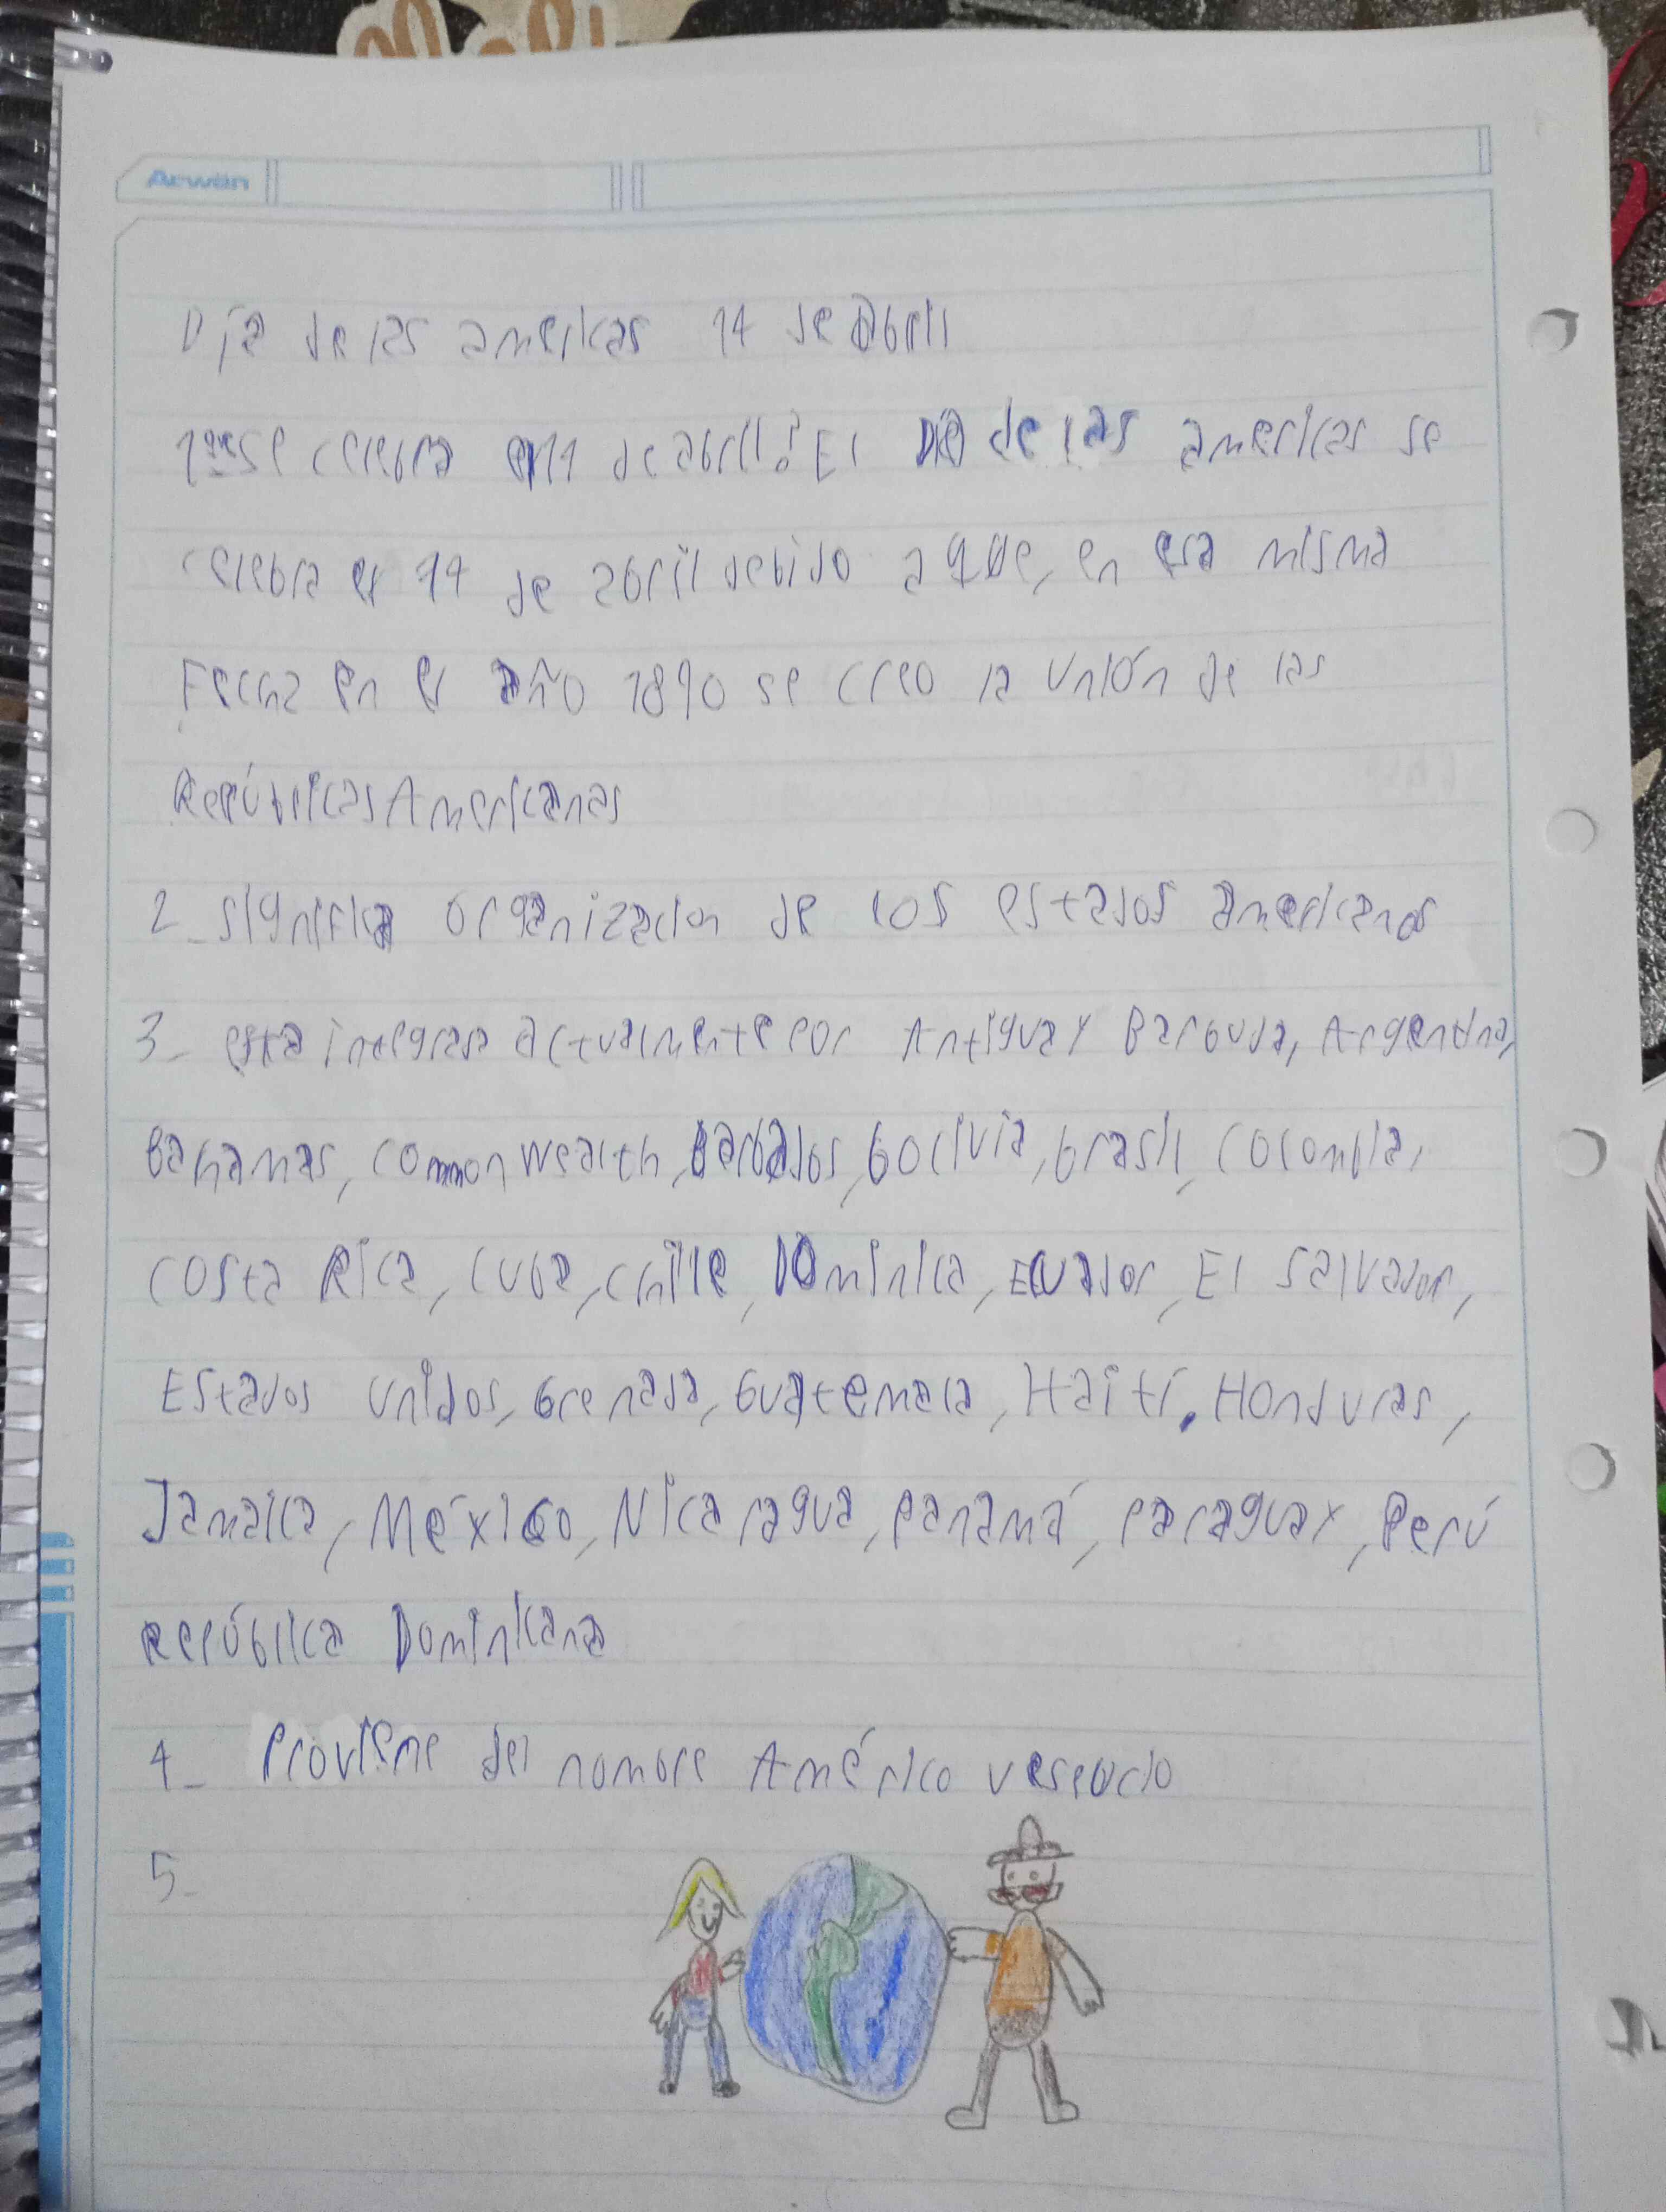 Arwen
Día de las americas 14 de abril
1 que se celebra el 14 de abril? El Día de las americas se
celebra el 14 de abril debido a que, en esa misma
Fecha en el año 1890 se creo la Unión de las
Repúblicas Americanas
2_ significa organizacion de los estados americanos
3_ esta integrada actualmente por Antigua y Barbuda, Argentina,
Bahamas, commonwealth, Barbados, bolivia, brasil, colombia,
costa Rica, cuba, chile, Dominica, Ecuador, El Salvador,
Estados unidos, Grenada, Guatemala, Haití, Honduras,
Jamaica, México, Nicaragua, Panamá, Paraguay, Perú
República Dominicana
4_ Proviene del nombre Américo vespucio
5_